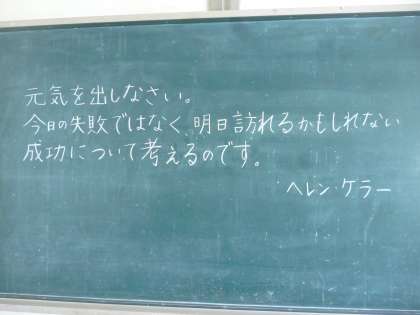 元気を出しなさい。
今日の失敗ではなく、明日訪れるかもしれない
成功について考えるのです。
ヘレン・ケラー